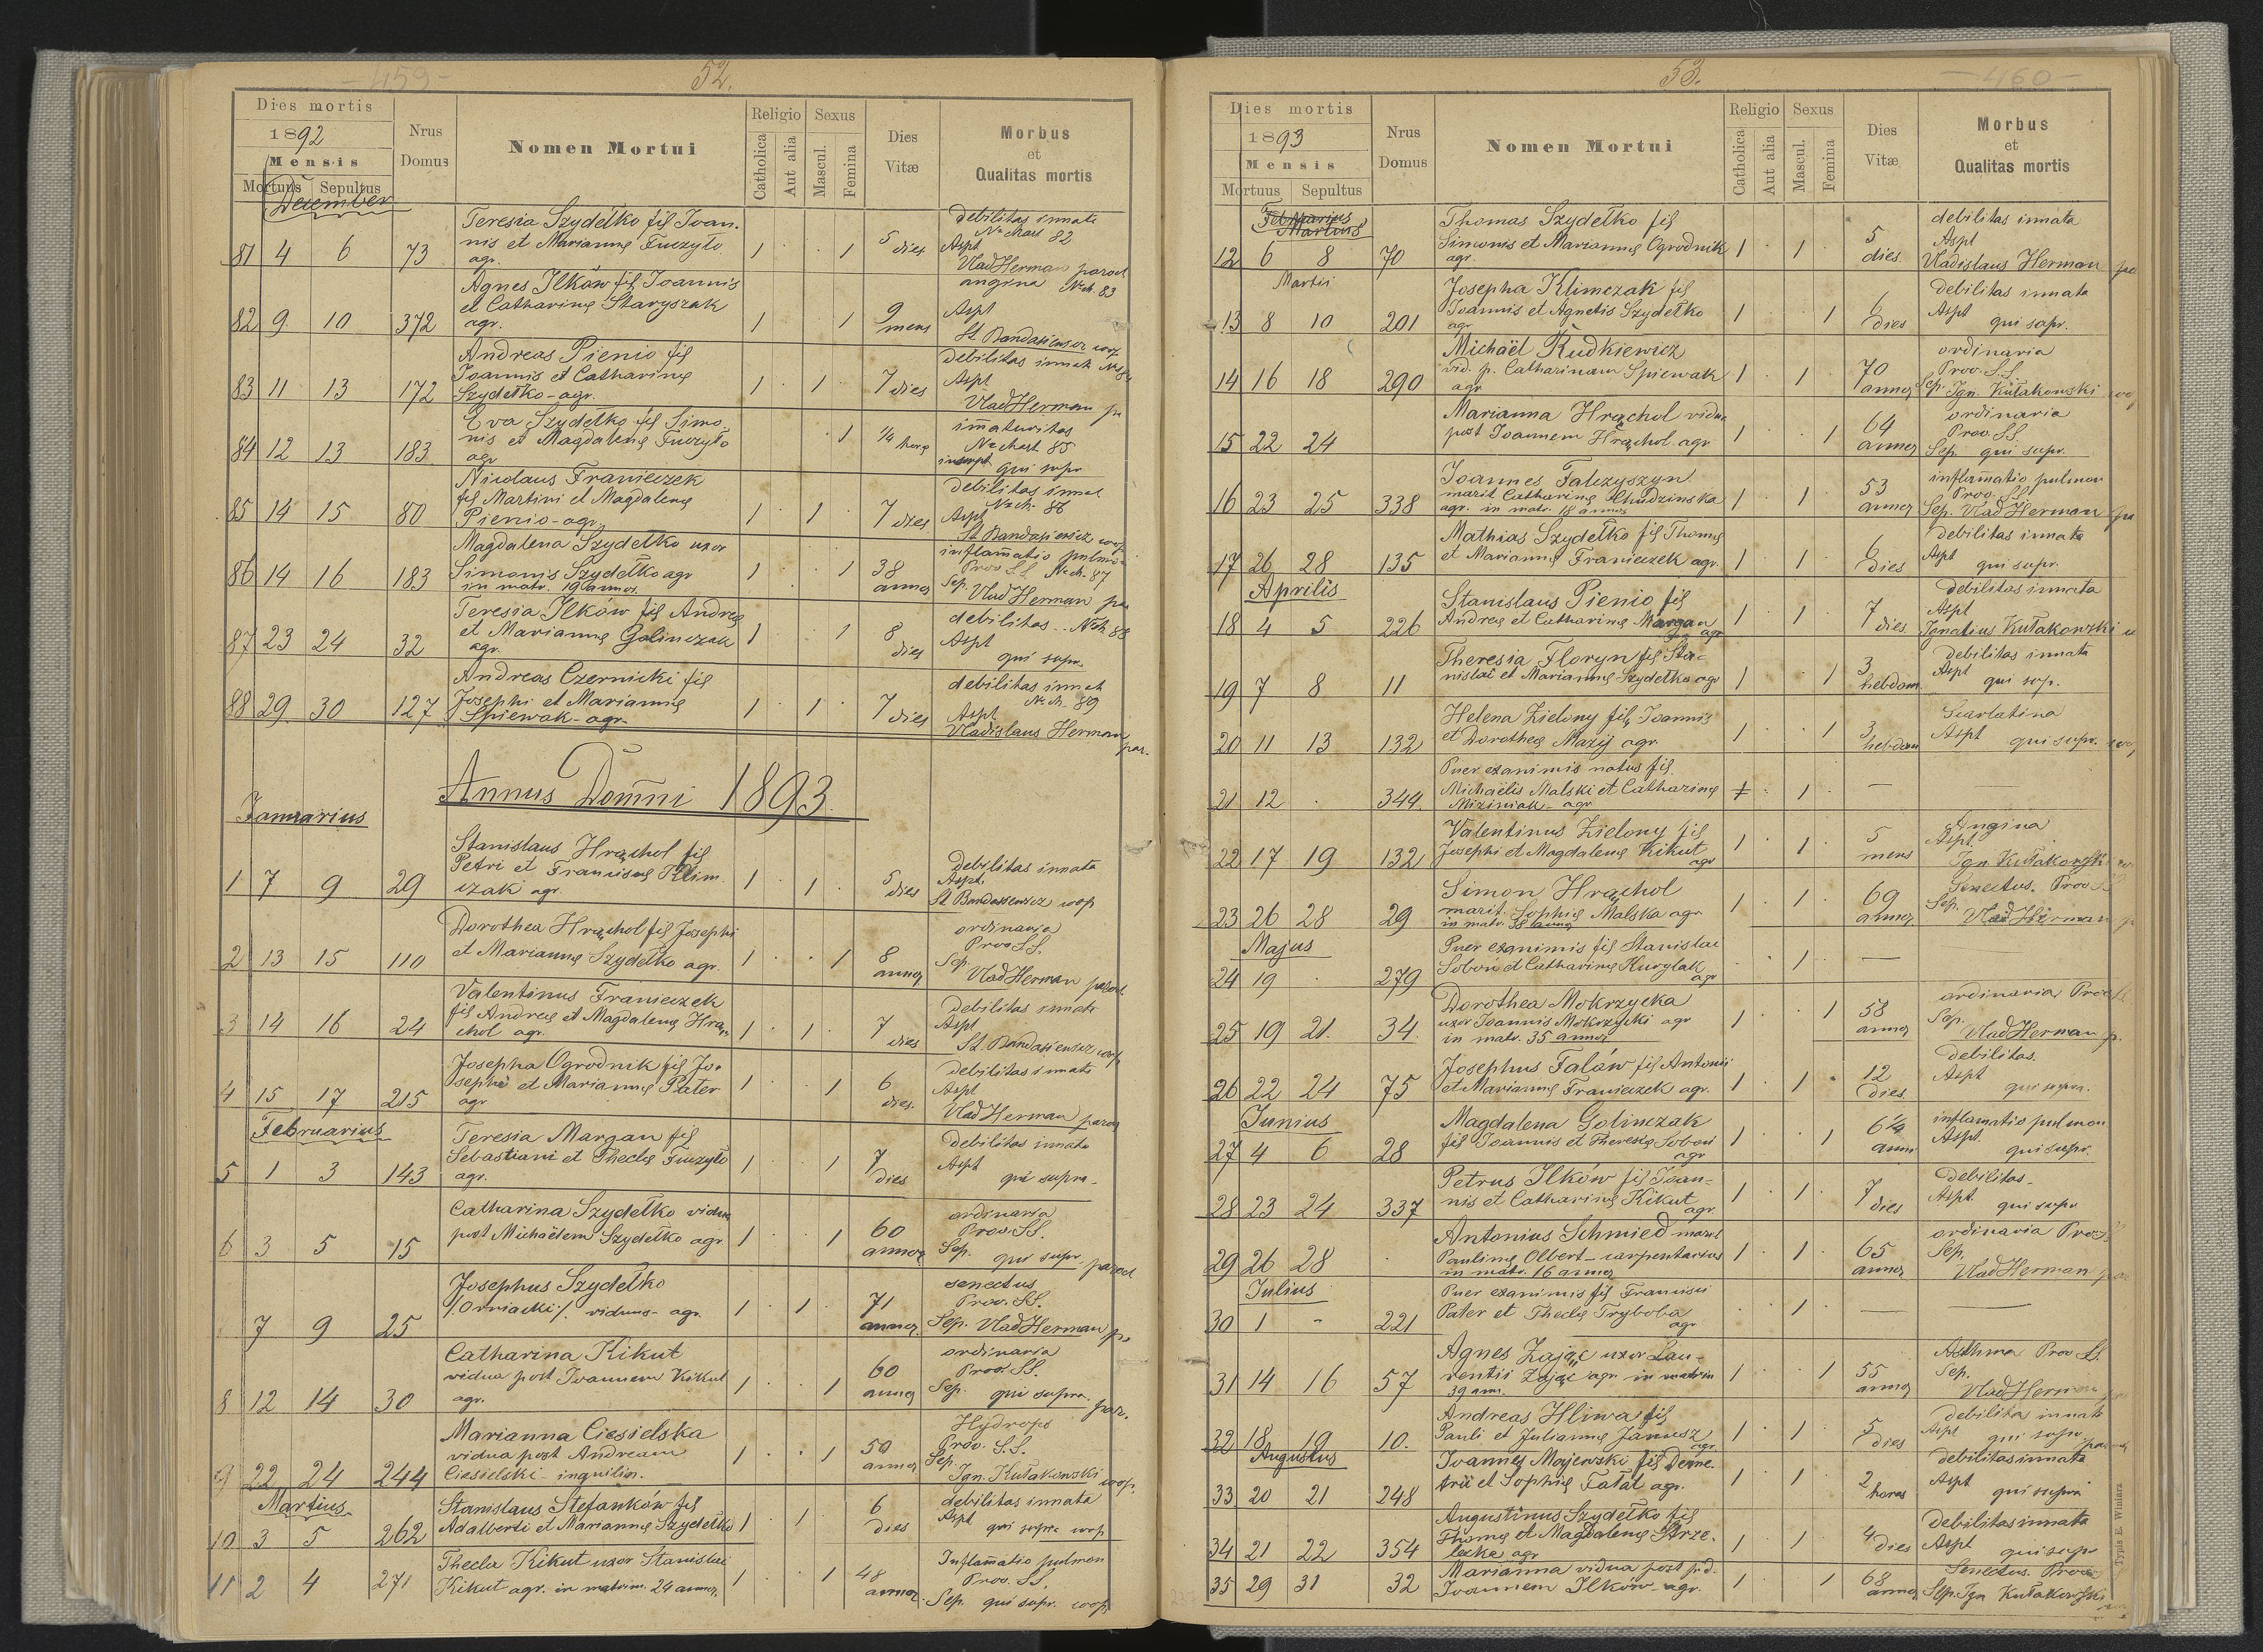 - 459 -
52.
Dies mortis
1892
Mensis
Mortuus Sepultus
Nrus
Domus
Nomen Mortui
Religio
Catholica
Aut alia
Sexus
Mascul.
Femina
Dies
Vitæ
Morbus
et
Qualitas mortis
Dezember
Teresia Szydełko fil Joan-
nis et Mariannę Fuczyło
agr.
81 4 6 73 1 . . 1 5 dies
debilitas innata
No chart 82
Aspt
Vlad Herman paroch
Agnes Ilków fil Joannis
et Catharinę Staryszak
agr.
82 9 10 372 1 1 9 mens
angina No ch. 83
Aspt
St. Bandasiewicz coop
Andreas Pienio fil
Joannis et Catharinę
Szydełko - agr.
83 11 13 172 1 . 1 . 7 dies
debilitas innata No 84
Aspt
Vlad Herman pa
Eva Szydełko fil Simo
nis et Magdalenę Fuczyło
agr
84 12 13 183 . 1 1/4 horę
immaturitas
No chart 85
qui supr
Nicolaus Franieczek
fil Martini et Magdalenę
Pienio - agr.
85 14 15 80 1 . 1 . 7 dies
debilitas innat
No ch. 86
Aspt
St Bandasiewicz coop
Magdalena Szydełko uxor
Simonis Szydełko agr
in matr. 19 annos.
86 14 16 183 1 . . 1 38 annor
inflammatio pulmo-
Prov SS No ch. 87
Sep. Vlad Herman pa
Teresia Ilków fil Andreę
et Mariannę Golinczak
agr.
87 23 24 32 1 . 1 8 dies
debilitas .. No ch 88
Aspt
qui supr.
Andreas Czernicki fil
Josephi et Mariannę
Spiewak - agr.
88 29 30 127 1 . 1 . 7 dies
debilitas innat
No ch. 89
Aspt
Vladislaus Herman par.
Annus Domni 1893.
Januarius
Stanislaus Hrąchol fil
Petri et Franciscę Klim-
czak agr.
1 7 9 29 1 . 1 . 5 dies
debilitas innata
Aspt.
St Bandasiewicz coop
Dorothea Hrąchol fil Josephi
et Mariannę Szydełko agr.
2 13 15 110 1 . . 1 8 annor
ordinaria
Prov SS.
Sep.
Vlad Herman paroch
Valentinus Franieczek
fil Andreę et Magdalenę Hrą-
chol agr.
3 14 16 24 1 . 1 . 7 dies
debilitas innata
Aspt
St. Bandasiewicz coop
Josepha Ogrodnik fil Jo-
sephi et Mariannę Pater
agr
4 15 17 215 1 . 1 6 dies.
debilitas innata
Aspt
Vlad Herman paroch
Februarius
Teresia Margan fil
Sebastiani et Theclę Fuczyło
agr.
5 1 3 143 1 . 1 7 dies
debilitas innata
Aspt
qui supra-
Catharina Szydełko vidua
post Michaëlem Szydełko agr
6 3 5 15 1 . . 1 60 annor
ordinaria
Prov. SS.
Sep. qui supr. paroch
Josephus Szydełko
/:Orriacki:/ viduus - agr.
7 9 25 1 . 1 . 71 annor.
senectus
Prov. SS.
Sep. Vlad Herman pa
Catharina Kikut
vidua post Joannem Kikut
agr.
8 12 14 30 1 . . 1 60 annor
ordinaria
Prov. SS.
Sep. qui supra. par.
Marianna Ciesielska
vidua post Andream
Ciesielski - inquilin.
9 22 24 244 1 . . 1 50 annor
Hydrops
Prov. S.S.
Sep.
Ign. Kułakowski coop.
Martius
Stanislaus Stefanków fil
Adalberti et Mariannę Szydełko
10 3 5 262 1 . 1 . 6 dies
debilitas innata
Aspt
qui supra coop
Thecla Kikut uxor Stanislai
Kikut agr. in matrim. 24 annor.
11 2 4 271 1 . . 1 48 annor.
Inflammatio pulmon
Prov. SS.
Sep. qui supr. coop
53.
- 460 -
Dies mortis
1893
Mensis
Mortuus Sepultus
Nrus
Domus
Nomen Mortui
Religio
Catholica
Aut alia
Sexus
Mascul.
Femina
Dies
Vitæ
Morbus
et
Qualitas mortis
Februarius
Martius
Thomas Szydełko fil
Simonis et Mariannę Ogrodnik
agr.
12 6 8 70 1 . 1 . 5 dies.
debilitas innata
Aspt
Vladislaus Herman pa
Martii
Josepha Klimczak fil
Joannis et Agnetis Szydełko
agr
13 8 10 201 1 . . 1 6 dies
debilitas innata
Aspt qui supr.
Michaël Rudkiewicz
vid. p. Catharinam Spiewak
agr
14 16 18 290 1 . 1 . 70 annor
ordinaria
Prov. S.S.
Sep. Ign. Kułakowski coop
Marianna Hrąchol vidua
post Joannem Hrąchol agr
15 22 24 1 . . 1 64 annor
ordinaria
Prov. SS.
Sep. qui supr.
Joannes Falczyszyn
marit Catharinę Chudzinska
agr. in matr. 18 annos
16 23 25 338 1 . 1 . 53 annor
inflammatio pulmon
Prov. SS.
Sep. Vlad Herman pa
Mathias Szydełko fil Thomę
et Mariannę Franieczek agr.
17 26 28 135 1 . 1 6 dies
debilitas innata
Aspt qui supr.
Aprilis
Stanislaus Pienio fil
Andreę et Catharinę Margan
agr
18 4 5 226 1 . 1 . 7 dies
debilitas innata
Aspt
Ignatius Kułakowski
Theresia Floryn fil Sta-
nislai et Mariannę Szydełko agr
19 7 8 11 1 . . 1 3 hebdom.
debilitas innata
Aspt
qui sup.
Helena Zielony fil. Joannis
et Dorotheę Mazij agr.
20 11 13 132 1 . . 1 3 hebdom
Scarlatina
Aspt qui supr. coop
Puer exanimis natus fil.
Michaëlis Malski et Catharinę
Miziniak - agr
21 12 . 344. . 1 . —
Valentinus Zielony fil
Josephi et Magdalenę Kikut
agr
22 17 19 132 1 . 1 . 5 mens
Angina
Aspt.
Ign Kułakowski
Simon Hrąchol
marit. Sophię Malska agr
in matr. 38 annor
23 26 28 29 1 . 1 . 69 annor
Senectus. Prov SS
Sep.
Vlad Herman p
Majus
Puer exanimis fil Stanislai
Soboń et Catharinę Kurylak
agr
24 19 . 279 . 1 —
Dorothea Mokrzycka
uxor Joannis Mokrzycki agr
in matr. 35 annor
25 19 21. 34. 1 . . 1 58 annor
ordinaria Prov SS
Sep.
Vlad Herman p.
Josephus Falów fil Antonii
et Mariannę Franieczek agr.
26 22 24 75 1 . 1 . 12 dies
debilitas.
Aspt
qui supra.
Junius
Magdalena Golinczak
fil Joannis et Theresię Soboń
agr
27 4 6 28 1 . . 1 6 1/4 anni
inflamatio pulmon
Aspt.
qui supr.
Petrus Ilków fil Joan-
nis et Catharinę Kikut
agr.
28 23 24 337 1 . 1 . 7 dies
Debilitas-
Aspt.
qui supr
Antonius Schmied marit
Paulinę Olbert - carpentarius
in matr. 16 annor
29 26 28 . 1 . 1 . 65 annor
ordinaria Prov SS
Sep.
Vlad Herman pa
Julius
Puer exanimis fil Francisci
Pater et Theclę Tryboba
agr
30 1 - 221 . 1 . —
Agnes Zając uxor Lau-
rentii Zając agr. in matrim
39 ann.
31 14 16 57 1 . . 1 55 annor
Asthma Prov SS.
Sep.
Vlad Herman
Andreas Hliwa fil
Pauli et Juliannę Janusz
agr.
32 18 19 10. 1 . 1 . 5 dies
debilitas innata
Aspt qui supr
Augustus
Joannes Majewski fil Deme-
trii et Sophię Fatał agr.
33 20 21 248 1 . 1 . 2 horas
debilitas innata
Aspt
qui supra
Augustinus Szydełko fil
Thomę et Magdalenę Strze-
lecka agr
34 21 22 354 1 . 1 4 dies
debilitas innata
Aspt qui supr
Marianna vidua post p.d.
Joannem Ilków - agr.
35 29 31 32 1 . . 1 68 annor
Senectus. Prov
Sep. Ign Kułakowski
Typis E. Winiarz